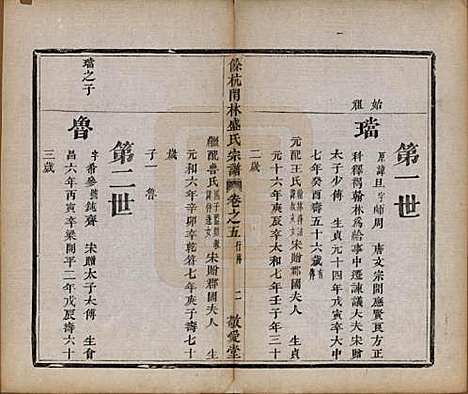 第一世
始祖
璫
原諱旦字師周 唐文宗開應賢良方正
科釋褐翰林爲給事中遷諫議大夫宋贈
太子少傅 生貞元十四年戊寅卒大中
七年癸酉壽五十六歲
元配王氏 宋贈郡國夫人 生貞
元十六年庚辰卒太和七年壬子年三十
二歲
餘杭閑林盛氏宗譜 卷之五 行傳 二 敬愛堂
繼配魯氏 宋贈郡國夫人 生
元和六年辛卯卒乾符七年庚子壽七十
歲
子 魯
第二世
璫之子
魯
字希參號鈍齋 宋贈太子太傅 生會
昌六年丙寅卒梁開平二年戊辰壽六十
三歲